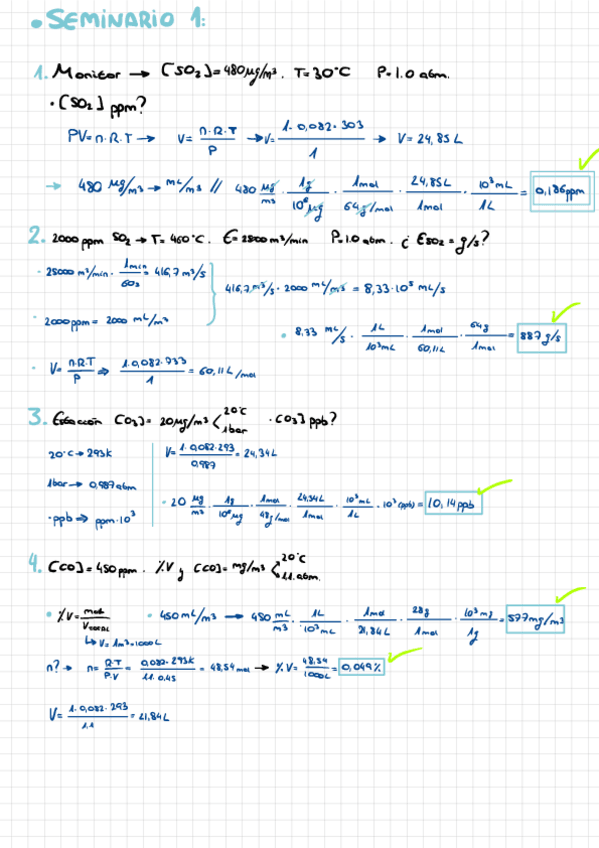 • SEMINARIO 1:
1. Monitor → [SO2] = 480 μg/m³. T = 30°C P = 1.0 atm.
• [SO2] ppm?
PV = n·R·T → V = n·R·T / P → V = 1·0,082·303 / 1 → V = 24,85 L
→ 480 μg/m³ → mL/m³ // 480 μg/m³ · 1g / 10⁶ μg · 1mol / 64 g/mol · 24,85L / 1mol · 10³ mL / 1L = 0,186 ppm
2. 2000 ppm SO2 → T = 460°C. E = 25000 m³/min P = 1.0 atm. ¿ESO2 = g/s?
• 25000 m³/min · 1min / 60s = 416,7 m³/s
416,7 m³/s · 2000 mL/m³ = 8,33·10⁵ mL/s
• 2000 ppm = 2000 mL/m³
• 8.33 mL/s · 1L / 10³mL · 1mol / 60,11L · 64g / 1mol = 887 g/s
• V = n·R·T / P ⇒ 1·0,082·733 / 1 = 60,11 L/mol
3. Estación [O3] = 20 μg/m³ < 20°C 1bar • [O3] ppb?
20°C → 293K
V = 1·0,082·293 / 0,987 = 24,34L
1bar → 0,987 atm
• 20 μg/m³ · 1g / 10⁶ μg · 1mol / 48 g/mol · 24,34L / 1mol · 10³ mL / 1L · 10³ (ppb) = 10,14 ppb
• ppb ⇒ ppm·10³
4. [CO] = 450 ppm. %V y [CO] = mg/m³ < 20°C 1.1 atm.
• %V = mol / Vtotal
↳ V = 1m³ = 1000L
• 450 mL/m³ → 450 mL/m³ · 1L / 10³ mL · 1mol / 21,84L · 28g / 1mol · 10³ mg / 1g = 577 mg/m³
n? → n = R·T / P·V = 0,082·293K / 1.1·0,45 = 48,54 mol → %V = 48,54 / 1000L = 0,049%
V = 1·0,082·293 / 1.1 = 21,84L